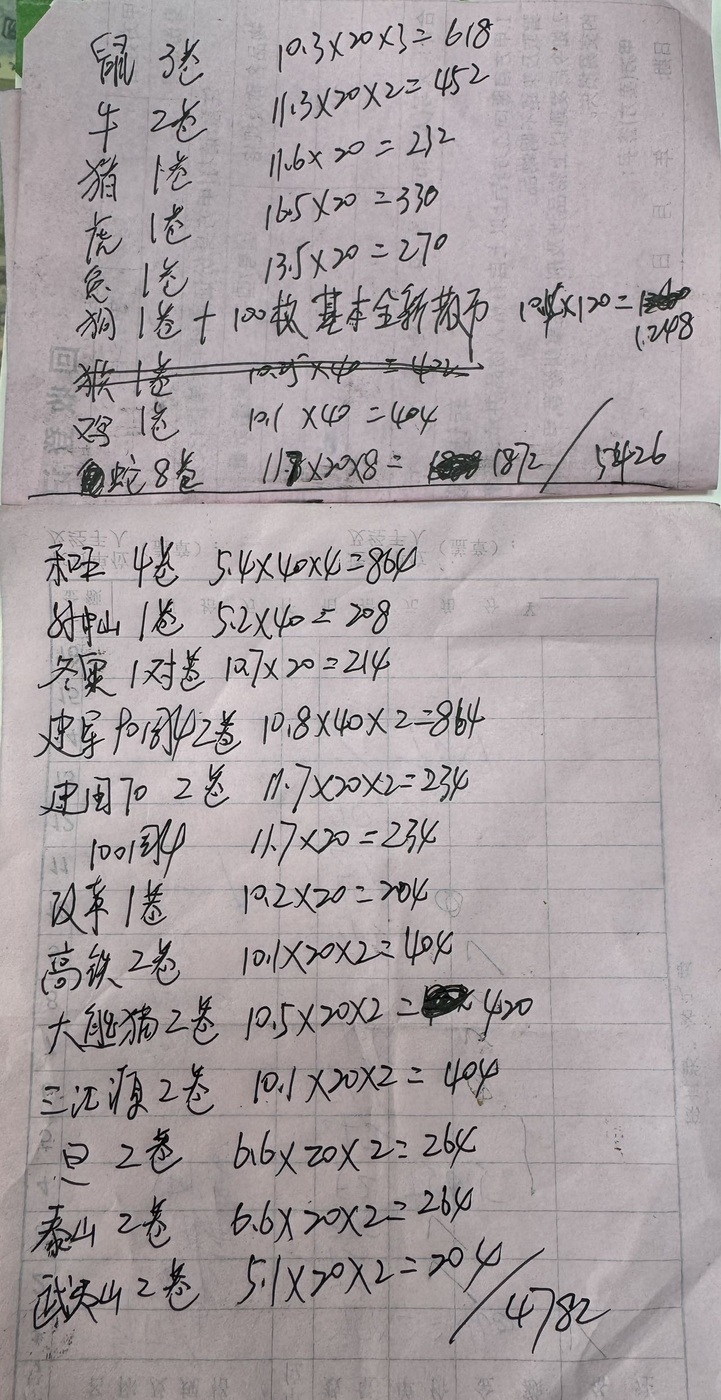 鼠 3卷 10.3×20×3=618
牛 2卷 11.3×20×2=452
猪 1卷 11.6×20=232
虎 1卷 16.5×20=330
兔 1卷 13.5×20=270
狗 1卷+100枚 基本全新散币 10.4×120=
1.248
猴 1卷 10.05×40=402
鸡 1卷 10.1×40=404
蛇 8卷 11.7×20×8= 1872/5426
和㕵 4卷 5.4×40×4=864
孙中山 1卷 5.2×40=208
冬奥 1对卷 10.7×20=214
建军90周年2卷 10.8×40×2=864
建国70 2卷 11.7×20×2=234
100周年 11.7×20=234
改革 1卷 10.2×20=204
高铁 2卷 10.1×20×2=404
大熊猫 2卷 10.5×20×2= 420
三江源 2卷 10.1×20×2=404
2卷 6.6×20×2=264
泰山 2卷 6.6×20×2=264
武夷山 2卷 5.1×20×2=204
/4782